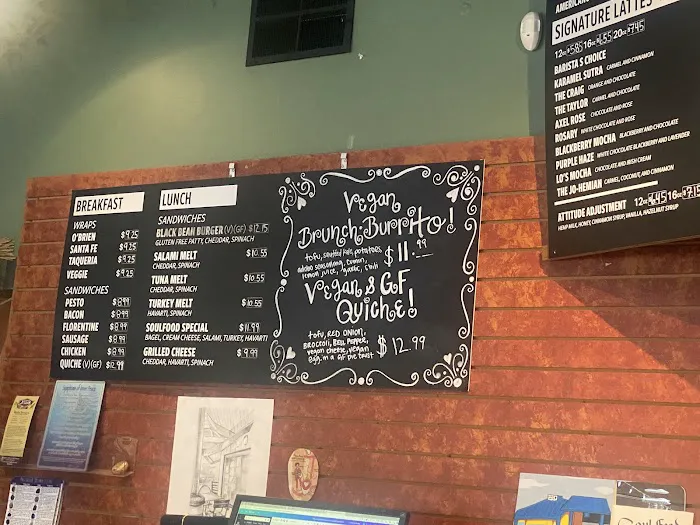 BREAKFAST
WRAPS
O'BRIEN $9.25
SANTA FE $9.25
TAQUERIA $9.25
VEGGIE $9.25
SANDWICHES
PESTO $8.99
BACON $8.99
FLORENTINE $8.99
SAUSAGE $8.99
CHICKEN $8.99
QUICHE (V)(GF) $12.99
LUNCH
SANDWICHES
BLACK BEAN BURGER (V)(GF) $12.15
GLUTEN FREE PATTY, CHEDDAR, SPINACH
SALAMI MELT $10.55
CHEDDAR, SPINACH
TUNA MELT $10.55
CHEDDAR, SPINACH
TURKEY MELT $10.55
HAVARTI, SPINACH
SOULFOOD SPECIAL $11.99
BAGEL, CREAM CHEESE, SALAMI, TURKEY, HAVARTI
GRILLED CHEESE $9.99
CHEDDAR, HAVARTI, SPINACH
Vegan
Brunch-BurritO!
tofu, sautéed kale, potatoes,
adobo seasoning, cumin,
lemon juice, garlic, chili
$11.99
Vegan & GF
Quiche!
tofu, RED ONION,
BROCCOLI, BELL PEPPER,
vegan cheese, vegan
egg, in a GF pie crust
$12.99
AMERICANO
SIGNATURE LATTES
12oz $5.85 16oz $6.55 20oz $7.45
BARISTA S CHOICE
KARAMEL SUTRA CARAMEL AND CINNAMON
THE CRAIG ORANGE AND CHOCOLATE
THE TAYLOR CARAMEL AND CHOCOLATE
AXEL ROSE CHOCOLATE AND ROSE
ROSARY WHITE CHOCOLATE AND ROSE
BLACKBERRY MOCHA BLACKBERRY AND CHOCOLATE
PURPLE HAZE WHITE CHOCOLATE BLACKBERRY AND LAVENDER
LO'S MOCHA CHOCOLATE AND IRISH CREAM
THE JO-HEMIAN CARAMEL, COCONUT, AND CINNAMON
ATTITUDE ADJUSTMENT 12oz $6.45 16oz $7.15
HEMP MILK, HONEY, CINNAMON SYRUP, VANILLA, HAZELNUT SYRUP